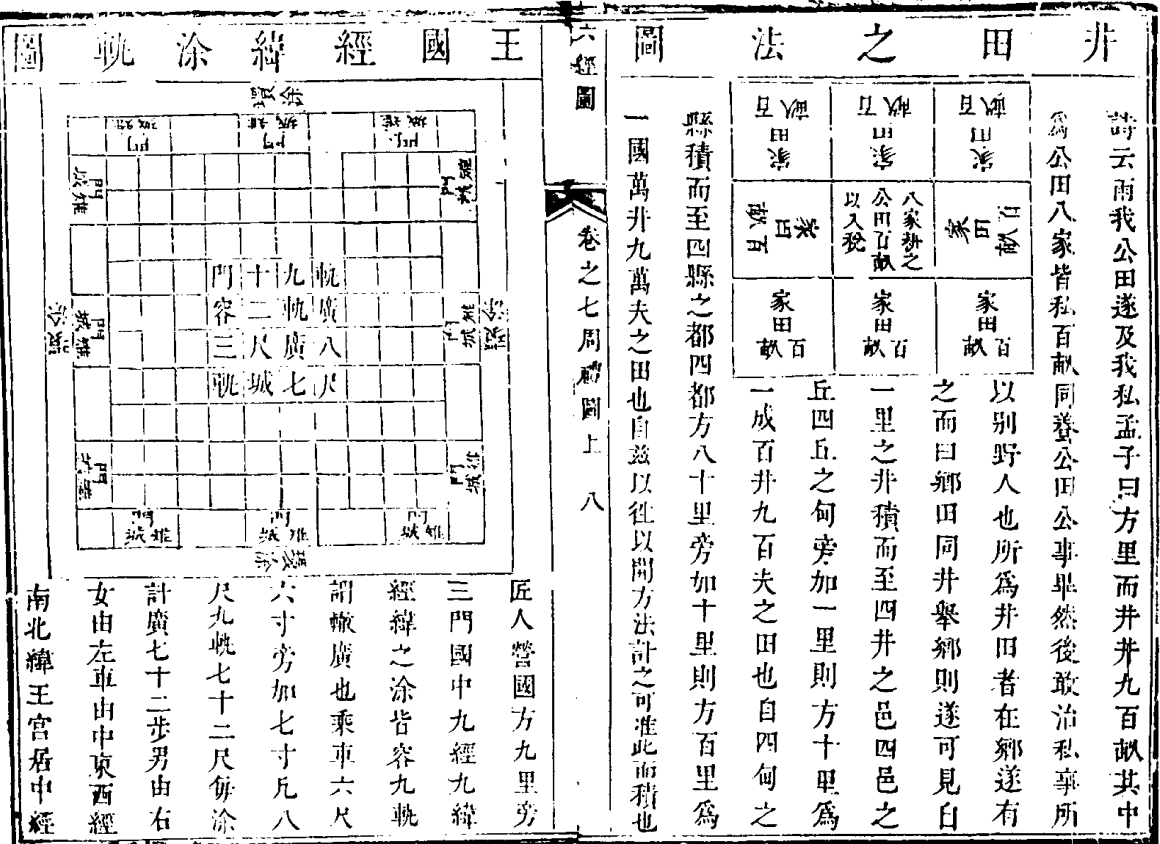 井田之法圖
詩云雨我公田遂及我私孟子曰方里而井井九百畝其中
爲公田八家皆私百畝同養公田公事畢然後敢治私事所
以别野人也所爲井田者在鄉遂有
之而曰鄉田同井舉鄉則遂可見自
一里之井積而至四井之邑四邑之
丘四丘之甸旁加一里則方十里爲
一成百井九百夫之田也自四甸之
縣積而至四縣之都四都方八十里旁加十里則方百里爲
一國萬井九萬夫之田也自兹以往以開方法計之可准此而積也
家田百畝
家田百畝
家田百畝
家田百畝
八家耕之
公田百畝
以入稅
家田百畝
家田百畝
家田百畝
家田百畝
六經圖
卷之七周禮圖上
八
王國經緯涂軌圖
環涂
環涂
環涂
環涂
城雉門
城雉門
城雉門
城雉門
城雉門
城雉門
城雉門
城雉門
城雉門
城雉門
城雉門
城雉門
軌廣八尺
九軌廣七
十二尺城
門容三軌
匠人營國方九里旁
三門國中九經九緯
經緯之涂皆容九軌
謂轍廣也乘車六尺
六寸旁加七寸凡八
尺九軌七十二尺每涂
計廣七十二步男由右
女由左車由中東西經
南北緯王宮居中經